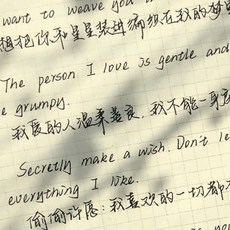 want to weave you
想把你和星星揉进
在我的梦里
The person I love is gentle and
be grumpy.
我爱的人温柔善良,我不能一身
Secretly make a wish. Don't le
everything I like.
偷偷许愿:我喜欢的一切都